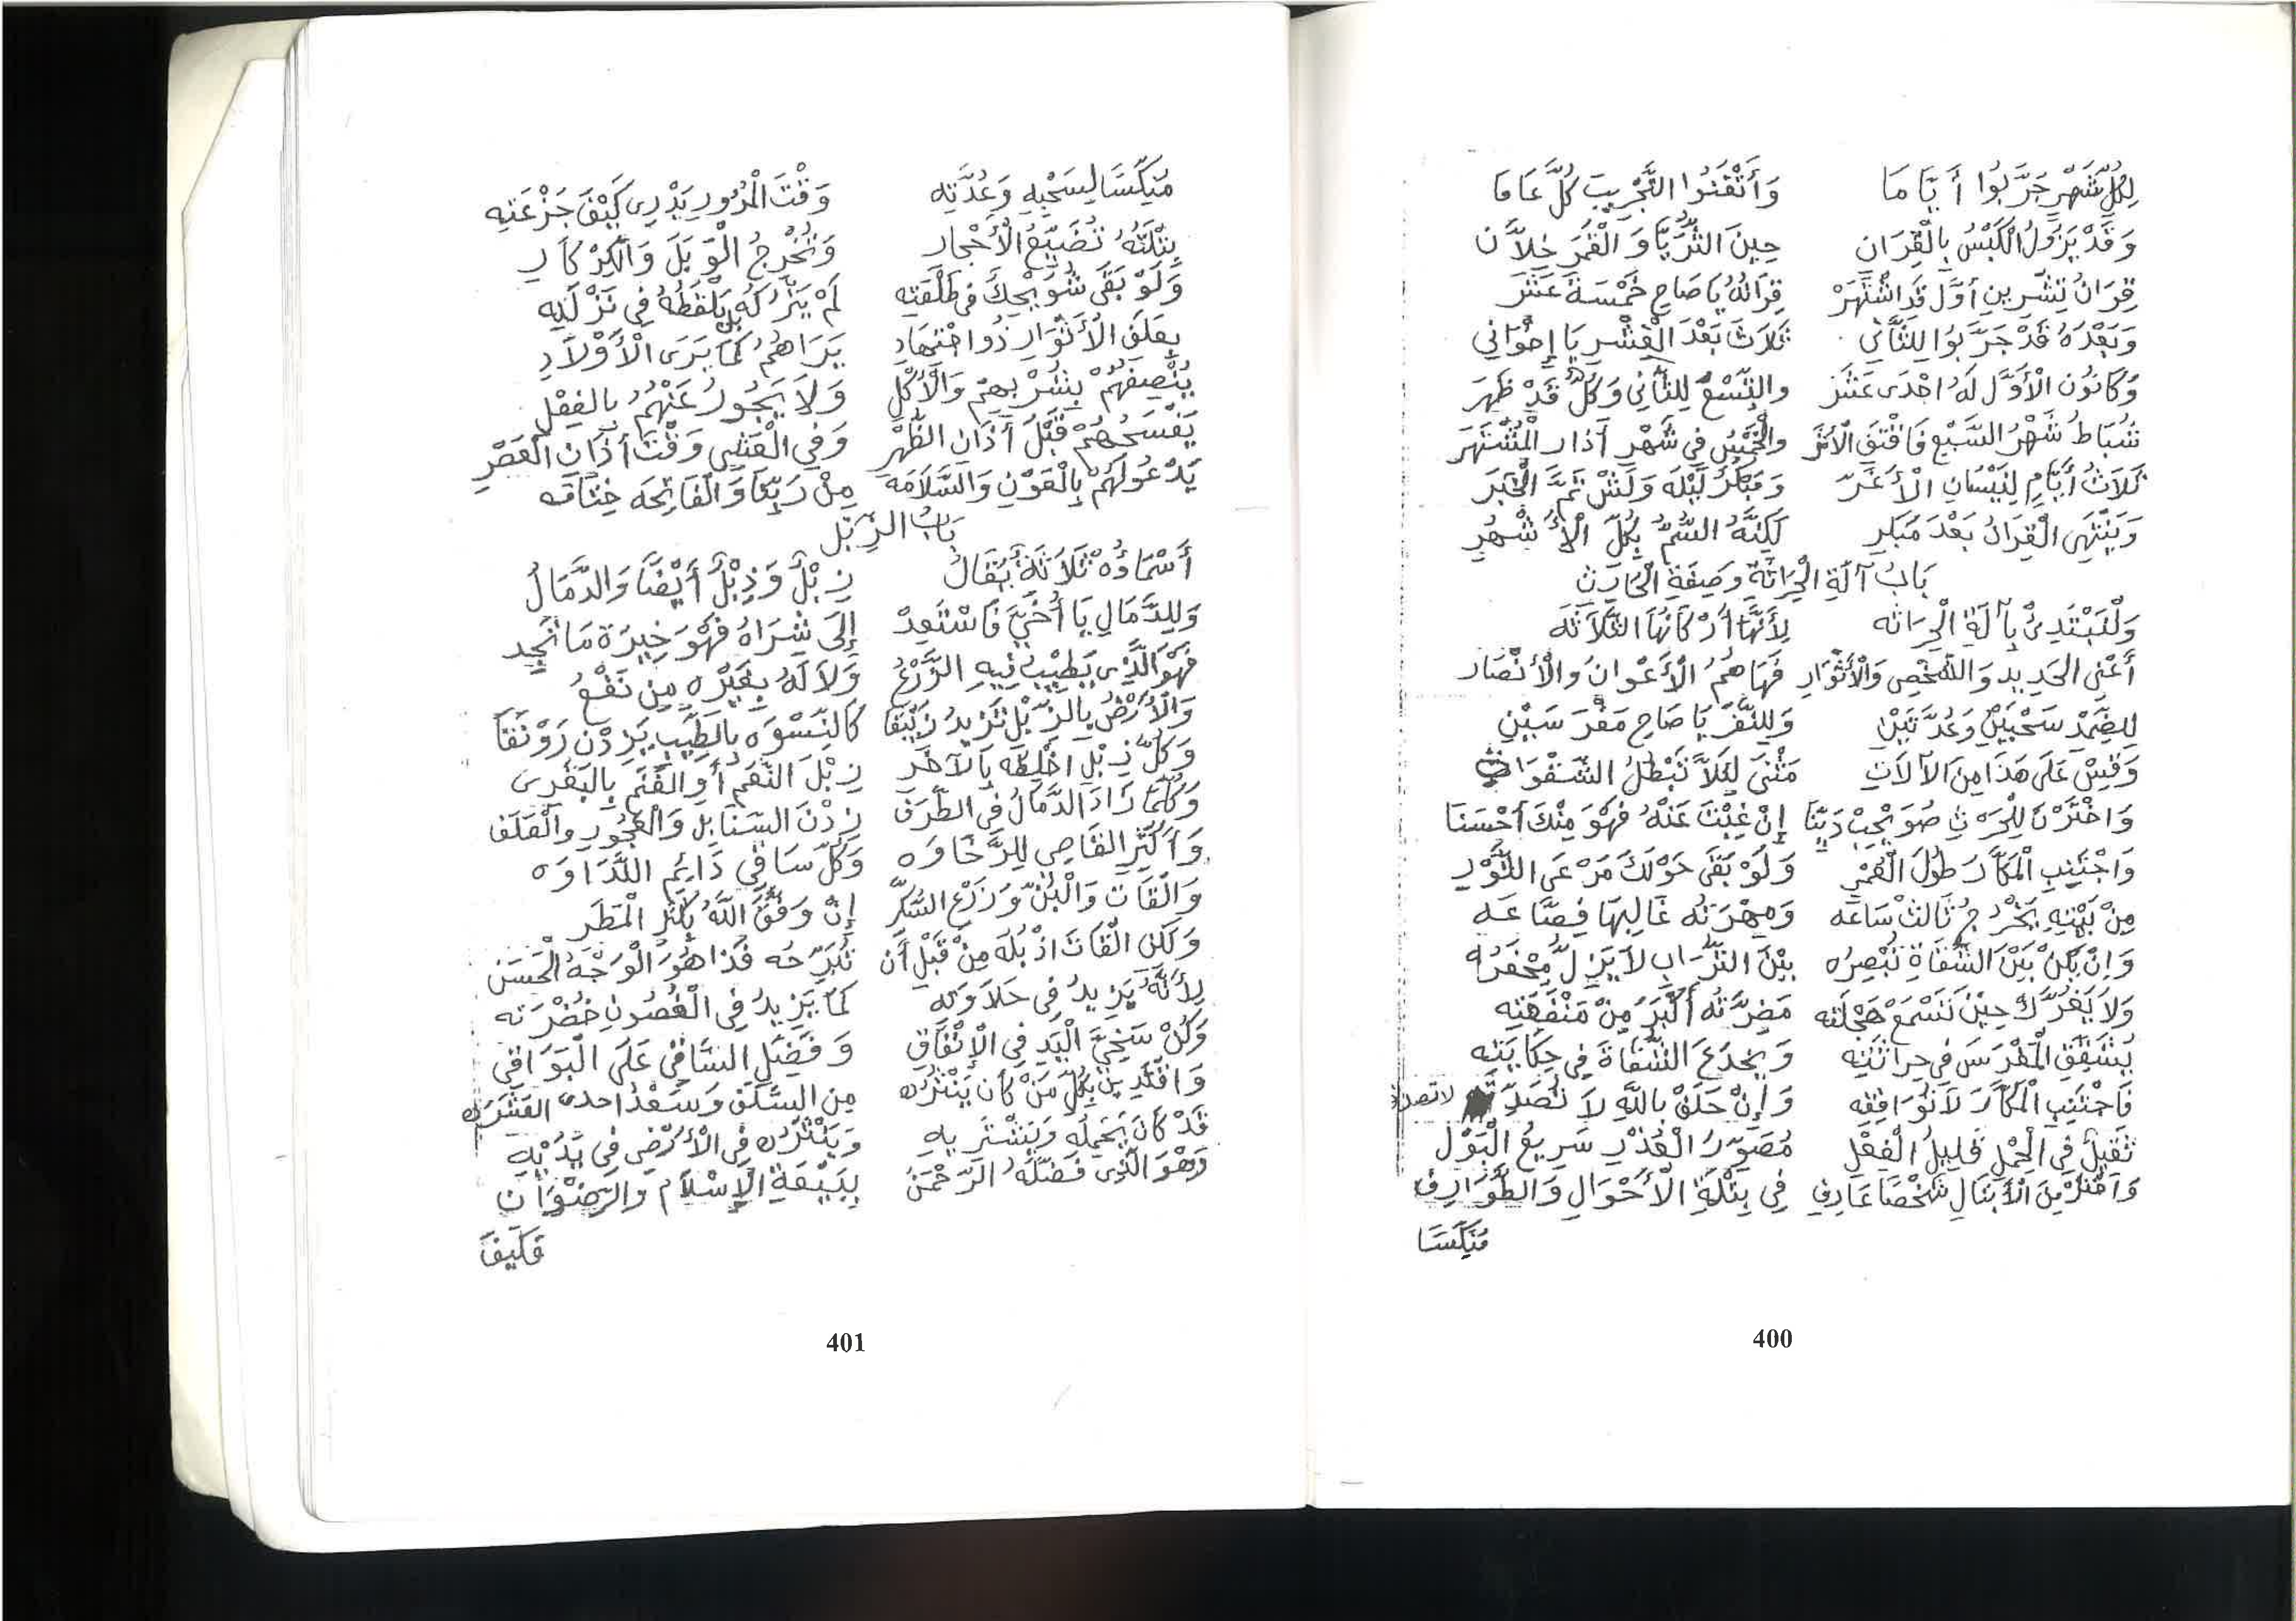 لِكُلِّ شَهْرٍ جَرَّبُوا أَيَّامَا وَأَتْقَنُوا التَّجْرِيبَ كُلَّ عَامَا
وَقَدْ يَزُولُ الْكَبْسُ بِالْقِرَانِ حِينَ الثُّرَيَّا وَالْقَمَرَ خِلاَّنِ
قِرَانُ تِشْرِينِ أَوَّل قَدِ اشْتَهَرْ قِرَانُهُ يَا صَاحِ خَمْسَةَ عَشَرَ
وَبَعْدَهُ قَدْ جَرَّبُوا لِلثَّانِي ثَلاَثَ بَعْدَ الْعَشْرِ يَا إِخْوَانِي
وَكَانُونَ الْأَوَّل لَهُ احْدَى عَشَرَ والتِّسْعُ لِلثَّانِي وَكُلٌّ قَدْ ظَهَرَ
شُبَاطُ شَهْرُ السَّبْعِ فَاقْتَفِ الْأَثَرَ والْخَمْسُ فِي شَهْرِ آذار الْمُشْتَهَرَ
ثَلاَثُ أَيَّامٍ لِنَيْسَانِ الْأَغَرّ وَمَبْكَرُ لَيْلَه وَلَيْسَ ثَمَّ الْخَبَر
وَيَنْتَهِي الْقِرَانُ بَعْدَ مَبْكَرِ لَكِنَّهُ السُّمُّ بِكُلِّ الْأَشْهُرِ
بَابُ آلَةِ الْحِرَاثَةِ وَصِفَةِ الْحَارِثِ
وَلْنَبْتَدِئْ بِآلَةِ الْحِرَاثَه لِأَنَّهَا أَرْكَانُهَا الثَّلاَثَه
أَعْنِي الحَدِيدِ وَالشَّخْصِ وَالْأَثْوَارِ فَهَاهُمُ الْأَعْوَانُ وَالْأَنْصَارِ
لِلضَّمْدِ سَحْبَيْنِ وَعُدَّتَيْنِ وَلِلنَّفَرْ يَا صَاحِ مَفْرَسَيْنِ
وَقِسْ عَلَى هَذَا مِنَ الآلاَتِ مَثْنَى لِئَلاَّ تَبْطُلُ الشَّقْوَاتِ
وَاخْتَرْنَ لِلْحَرْثِ صُوَيْحِبْ دَيِّنَا إِنْ غِبْتَ عَنْهُ فَهْوَ مِنْكَ أَحْسَنَا
وَاجْتَنِبِ الْمَكَّارَ طُولَ الْعُمْرِ وَلَوْ بَقَى حَوْلَكَ مَرْعَى الثَّوْرِ
مِنْ بَيْتِهِ يَخْرُجُ ثَالِثْ سَاعَه وَمِهْرَتُه غَالِبَهَا فِصَّاعَه
وَإِنْ يَكُنْ بَيْنَ الشُّقَاةِ تُبْصِرُه بَيْنَ التُّرَابِ لاَ يَزِلّ يَحْفَرُهُ
وَلاَ يَغُرَّكْ حِينَ تَسْمَعْ هَجْلَتَه مَضَرَّتُه أَكْبَرَ مِنْ مَنْفَعَتِه
يُشَقِّقِ الْمَفْرَسَ فِي حِرَاثَتِه وَيَخْدَعَ الشُّقَاةَ فِي حِكَايَتِه
فَاجْتَنِبِ الْمَكَّارَ لاَ تُوَافِقِه وَإِنْ حَلَفْ بِاللَّهِ لاَ تُصَدِّقَه لا تصدقه
ثَقِيلُ فِي الْحِمْلِ قَلِيلُ الْفِعْلِ مُصَوِّرُ الْعُذْرِ سَرِيعُ الْبَوْلِ
وَاخْتَرْ مِنَ الْأَبْتَالِ شَخْصًا عَارِفِ فِي بِتْلَةِ الْأَحْوَالِ وَالطَّوَارِفْ
مُنَكِّسَا
400
مُنَكِّسَا لِسَحْبِهِ وَعُدَّتِه وَقْتَ الْمُرُورِ يَدْرِي كَيْفَ جَزْعَتِه
بِتْلَتُهُ تُضَيِّعُ الْأَحْجَار وَتُخْرِجُ الْوَبَلَ وَالْكِرْكَارِ
وَلَوْ بَقَى شُوَيْحِكَ فِي طَلْعَتِه لَمْ يَتْرُكَهُ بَلْ يَلْقَطُهُ فِي نَزْلَتِه
بِعَلَفِ الْأَثْوَارِ ذُو اجْتِهَادِ يَرَاهُمُ كَمَا يَرَى الْأَوْلاَدِ
يُنْصِفُهُمْ بِشُرْبِهِمْ وَالْأَكْلِ وَلاَ يَجُورُ عَنْهُمُ بِالْفِعْلِ
يَفْسَحُهُمْ قَبْلَ أَذَانِ الظُّهْرِ وَفِي الْعَشِي وَقْتَ أَذَانِ الْعَصْرِ
يَدْعُو لَهُمْ بِالْعَوْنِ وَالسَّلاَمَه مِنْ رَبِّنَا وَالْفَاتِحَه خِتَامَه
بَابُ الزِّبْلِ
أَسْمَاؤُهُ ثَلاَثَةٌ يُقَالُ زِبْلٌ وَذِبْلٌ أَيْضًا وَالدَّمَالُ
وَلِلدَّمَالِ يَا أُخَيَّ فَاسْتَعِدْ إِلَى شِرَاهُ فَهْوَ خِيرَة مَا تَجِد
فَهْوَ الَّذِي يَطِيبُ فِيهِ الزَّرْعُ وَلاَ لَهُ بِغَيْرِهِ مِنْ نَفْعُ
وَالْأَرْضُ بِالزِّبْلِ تَزِيدُ زَيْنَقَا كَالنِّسْوَه بِالطِّيبِ يَزِدْنَ رَوْنَقَا
وَكُلّ زِبْلٍ اخْلِطَه بِالآخَرِ زِبْلَ النَّعَم أَوِ الْغَنَم بِالبَقَرِي
وَكُلَّمَا زَادَ الدَّمَالُ فِي الطَّرَف زِدْنَ السَّنَابِل وَالْعُجُورِ وَالْعَلَف
وَأَكْثِرِ الْقَاصِي لِلرَّخَاوَه وَكُلّ سَاقِي دَائِمِ النَّدَاوَه
وَالْقَاتَ وَالْبُنّ وَزَرْعَ السُّكَّرِ إِنْ وَفَّقَ اللَّهُ بِكُثْرِ الْمَطَر
وَلَكِن الْقَاتَ اذْبُلَه مِنْ قَبْلِ أَن تُبَرِّحُه فَذَا هُوَ الْوَجْهُ الْحَسَن
لِأَنَّهُ يَزِيدُ فِي حَلاَوَتِه كَمَا يَزِيدُ فِي الْغُصُونِ خُضْرَتَه
وَكُنْ سَخِيَّ الْيَدِ فِي الْإِنْفَاقِ وَفَضِّلِ السَّاقِي عَلَى الْبَوَاقِي
وَاقْتَدِيَنْ بِكُلِّ مَنْ كَانَ يَنْثُرُه مِن السَّلَف وَسَعْدْ احدى الْعَشَرَه
قَدْ كَانَ يَحْمِلُه وَيَشْتَرِيهِ وَيَنْثُرُه فِي الْأَرْضِ فِي يَدَيْهِ
وَهْوَ الَّذِي فَضَّلَهُ الرَّحْمَنُ بِبَيْعَةِ الْإِسْلاَم وَالرِّضْوَانِ
فَكَيْفَ
401